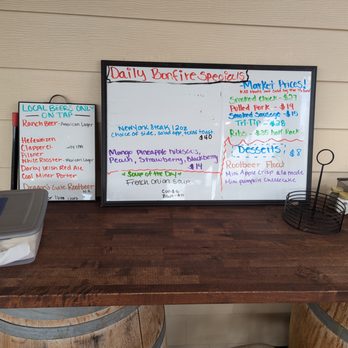 LOCAL BEERS ONLY
ON TAP
Ranch Beer - American Lager
Hefeweizen
Clapperci
Pilsner
White Rooster
Darby Irish Red Ale
Coal Miner Porter
Rootbeer
Daily Bonfire Specials
New York Steak 12oz
Choice of side, and toast
$40
Mango Pineapple Habanero,
Peach, Strawberry, Blackberry
$14
Soup of the Day
French Onion Soup
Cup
Bowl
Market Prices!
Smoked Chuck - $27
Pulled Pork - $19
Smoked Sausage - $15
Tri-Tip - $28
Ribs - $35 Half Rack
Desserts $8
Rootbeer Float
Mini Apple crisp a la mode
Mini pumpkin cheesecake